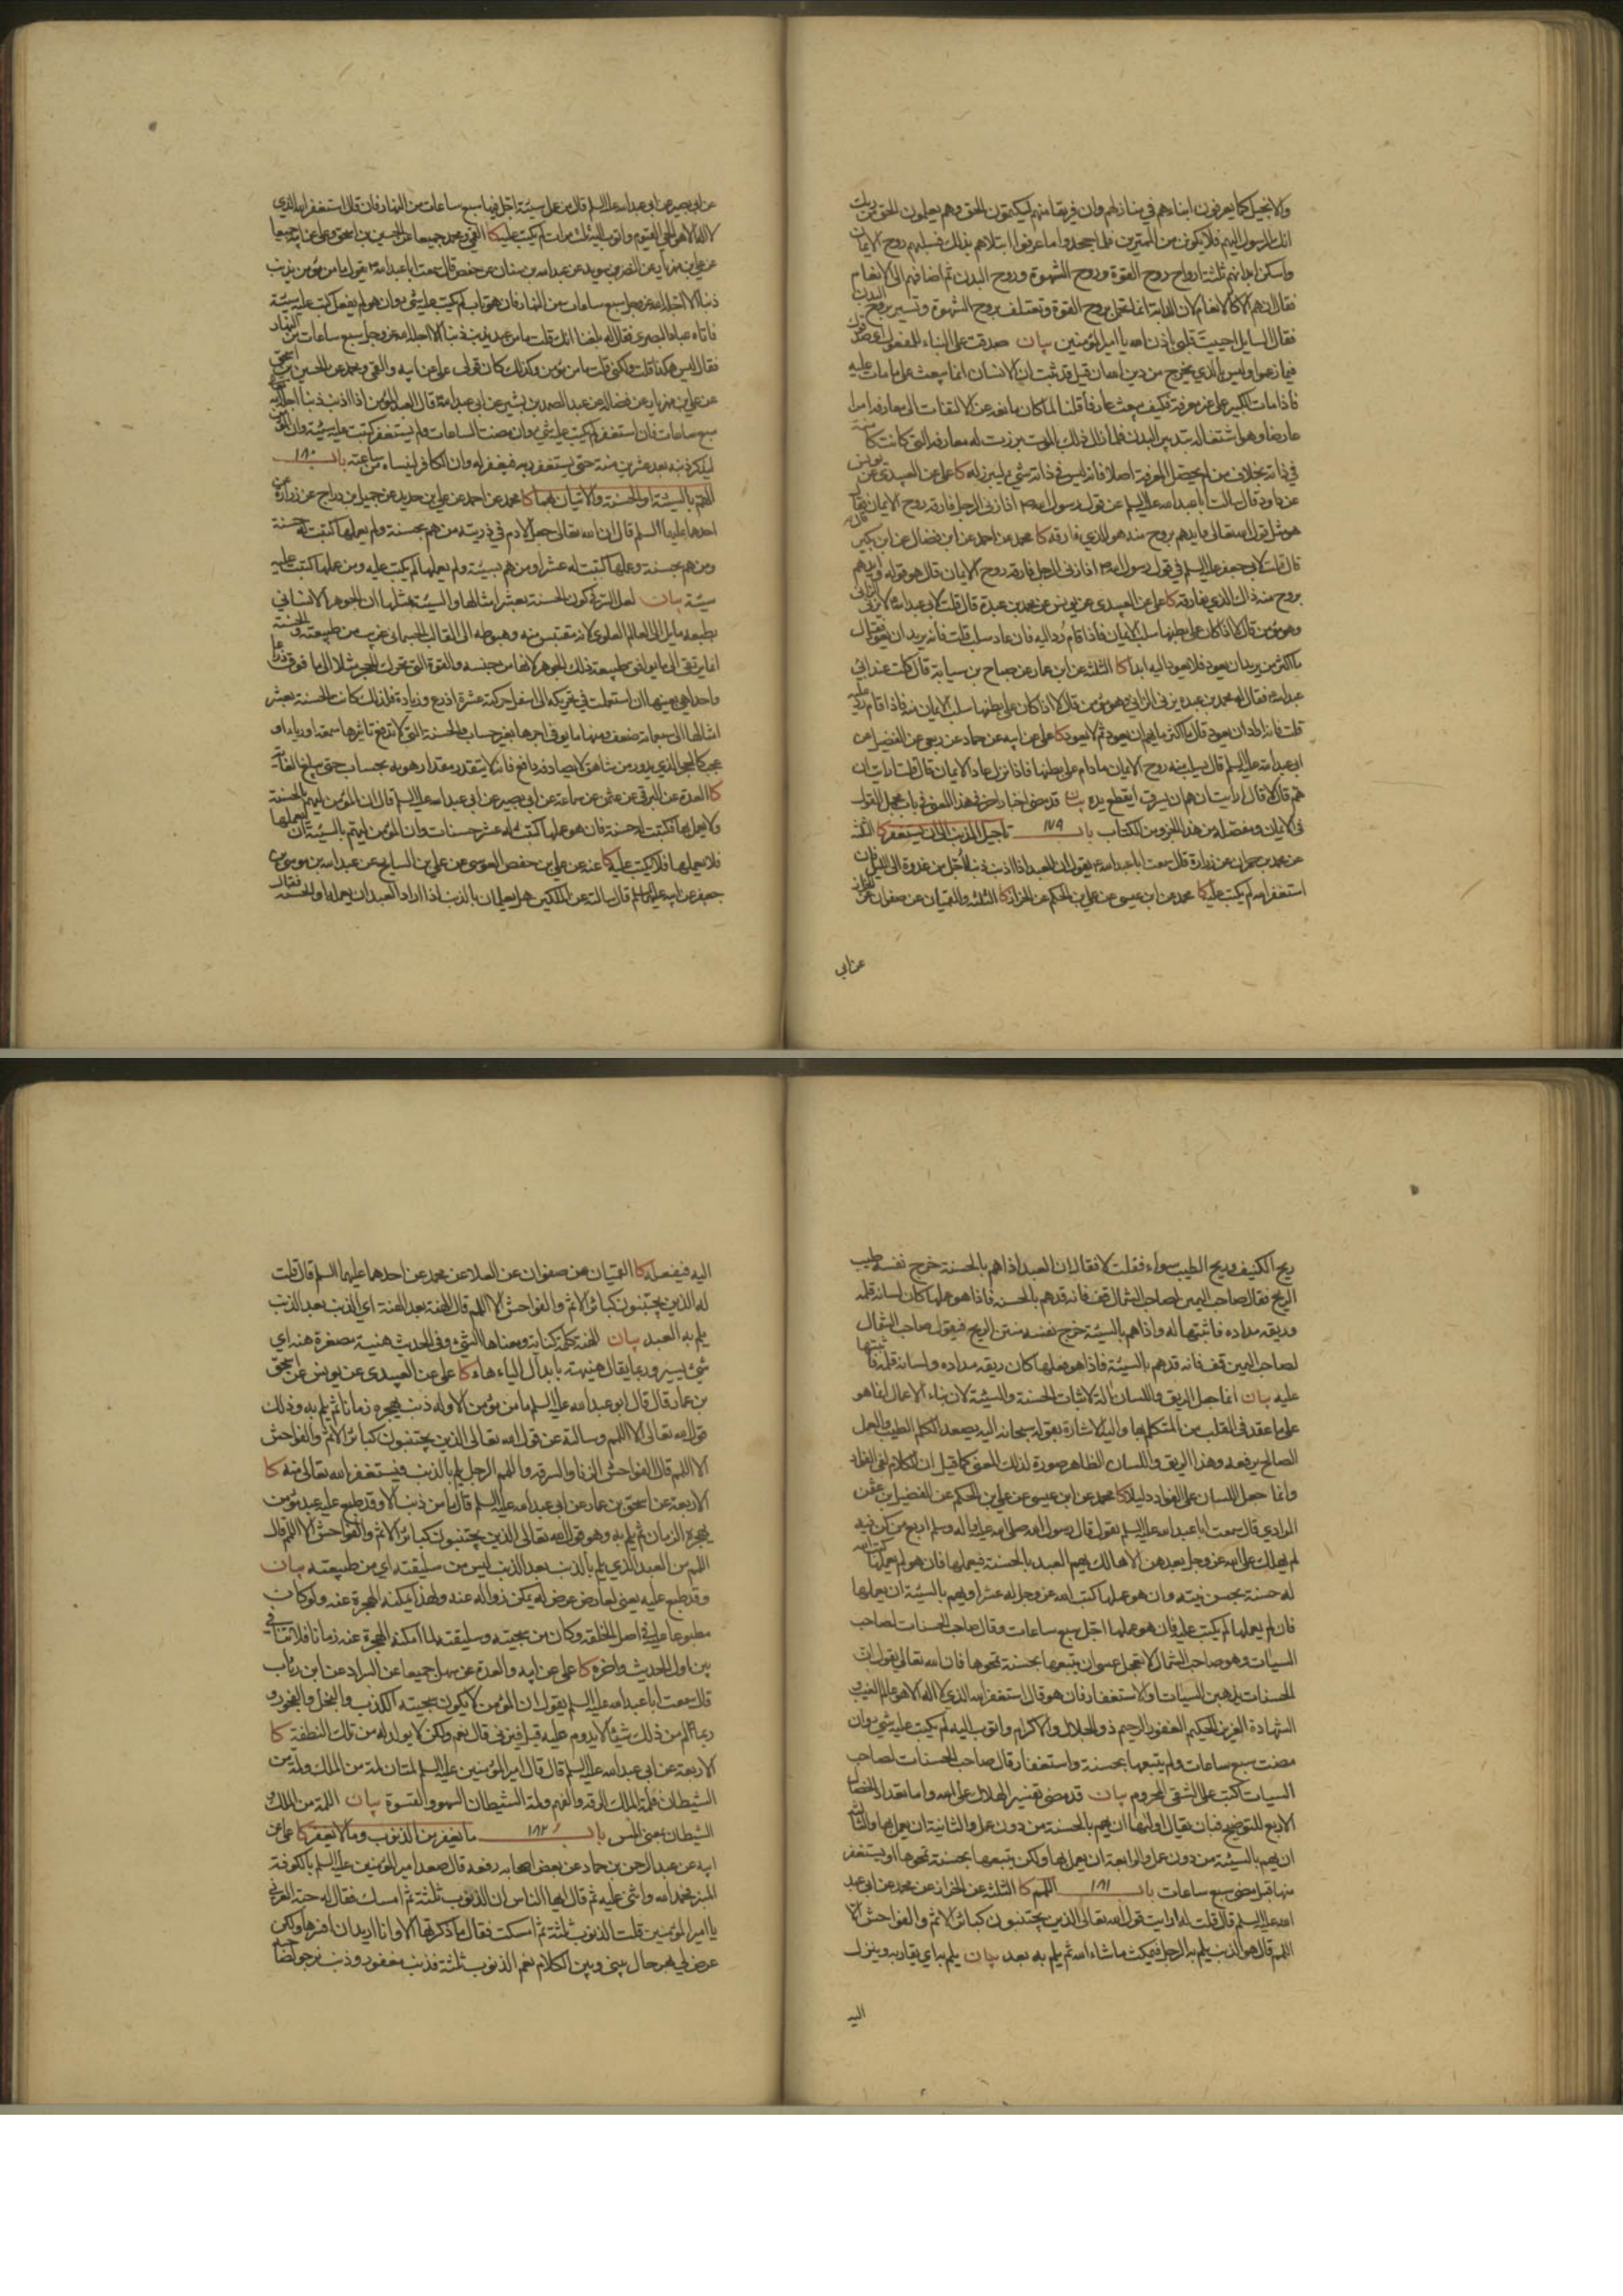 والانجيل كما يعرفون ابناءهم في منازلهم وان فريقا منهم ليكتمون الحق وهم يعلمون الحق من ربك
انك الرسول اليهم فلا تكونن من الممترين فلما جحدوا ما عرفوا ابتلاهم بذلك فسلبهم روح الايمان
واسكن ابدانهم ثلثة ارواح روح القوة وروح الشهوة وروح البدن ثم اضافهم الى الانعام
فقال ان هم الا كالانعام لان الدابة انما تحمل بروح القوة وتعتلف بروح الشهوة وتسير بروح البدن
فقال السايل احييت قلبي باذن الله يا امير المؤمنين بيان صدقت على البناء للمفعول
فيما زعموا وليس بالذي يخرج من دين الله فان قيل قد ثبت ان الانسان انما يبعث على ما مات عليه
فاذا مات الكبير على غير معرفة فكيف يبعث عارفا قلنا لما كان مانعه عن الالتفات الى معارفه امرا
عارضا وهو اشتغاله بتدبير البدن فلما زال ذلك بالموت برزت له معارفه التي كانت كامنة
في ذاته بخلاف من لم يحصل المعرفة اصلا فانه ليس في ذاته شيء ليبرز له كا علي عن العبيدي عن يونس
عن داود قال سالت ابا عبد الله عليه السلم عن قول رسول الله ص اذا زنى الرجل فارقه روح الايمان فقال
هو مثل قول الله تعالى وايدهم بروح منه هو الذي فارقه كا محمد عن احمد عن ابن فضال عن ابن بكير
قال قلت لابي جعفر عليه السلم في قول رسول الله ص اذا زنى الرجل فارقه روح الايمان قال هو قوله وايدهم
بروح منه ذاك الذي يفارقه كا علي عن العبيدي عن يونس عن محمد بن عبدة قال قلت لابي عبد الله ع لا يزني الزاني
وهو مؤمن قال لا اذا كان على بطنها سلب الايمان فاذا قام رد اليه فان عاد سلب قلت فانه يريد ان يعود فقال
ما اكثر من يريد ان يعود فلا يعود اليه ابدا كا الثلثة عن ابن عمار عن صباح بن سيابة قال كنت عند ابي
عبد الله ع فقال له محمد بن عبده يزني الزاني وهو مؤمن قال لا اذا كان على بطنها سلب الايمان منه فاذا قام رد عليه
قلت فانه اراد ان يعود قال ما اكثر ما يهم ان يعود ثم لا يعود كا علي عن ابيه عن حماد عن ربعي عن الفضيل عن
ابي عبد الله عليه السلم قال يسلب منه روح الايمان ما دام على بطنها فاذا نزل عاد الايمان قال قلت ارايت ان
هم قال لا قال ارايت ان هم ان يسرق ايقطع يده بيان قد مضى اخبار اخر في هذا المعنى في باب مجمل القول
في الايمان ومفصله من هذا الجزو من الكتاب باب ١٧٩ تاجيل المذنب الى ان يستغفر كا الثلثة
عن محمد بن حمران عن زرارة قال سمعت ابا عبد الله ع يقول ان العبد اذا اذنب ذنبا اجل من غدوة الى الليل فان
استغفر الله لم يكتب عليه كا محمد عن ابن عيسى عن علي بن الحكم عن الخزاز كا الثلثة والقميان عن صفوان عن الخزاز
عن ابي
عن ابي بصير عن ابي عبد الله عليه السلم قال من عمل سيئة اجل فيها سبع ساعات من النهار فان قال استغفر الله الذي
لا اله الا هو الحي القيوم واتوب اليه ثلث مرات لم يكتب عليه كا القمي ومحمد جميعا عن الحسين بن اسحق وعلي عن ابيه جميعا
عن علي بن مهزيار عن النضر بن سويد عن عبد الله بن سنان عن حفص قال سمعت ابا عبد الله ع يقول ما من مؤمن يذنب
ذنبا الا اجله الله عز وجل سبع ساعات من النهار فان هو تاب لم يكتب عليه شيء وان هو لم يفعل كتب عليه سيئة
فاتاه عباد البصري فقال له بلغنا انك قلت ما من عبد يذنب ذنبا الا اجله الله عز وجل سبع ساعات من النهار
فقال ليس هكذا قلت ولكني قلت ما من مؤمن وكذلك كان قولي علي عن ابيه والقمي ومحمد عن الحسين بن اسحق
عن علي بن مهزيار عن فضالة عن عبد الصمد بن بشير عن ابي عبد الله ع قال العبد المؤمن اذا اذنب ذنبا اجله الله
سبع ساعات فان استغفر لم يكتب عليه شيء وان مضت الساعات ولم يستغفر كتبت عليه سيئة وان المؤمن
ليذكر ذنبه بعد عشرين سنة حتى يستغفر ربه فيغفر له وان الكافر لينساه من ساعته باب ١٨٠
الهم بالسيئة او الحسنة والاتيان بهما كا محمد عن احمد عن علي بن حديد عن جميل بن دراج عن زرارة عن
احدهما عليهما السلم قال ان الله تعالى جعل لادم في ذريته من هم بحسنة ولم يعملها كتبت له حسنة
ومن هم بحسنة وعملها كتبت له عشرا ومن هم بسيئة ولم يعملها لم يكتب عليه ومن عملها كتبت عليه
سيئة بيان لعل السر في كون الحسنة بعشر امثالها والسيئة بمثلها ان الجوهر الانساني
بطبعه مايل الى العالم العلوي لانه مقتبس منه وهبوطه الى القالب الجسماني غريب من طبيعته والحسنة
انما يرتقي الى ما يوافق طبيعة ذلك الجوهر لانها من جنسه والقوة التي تحرك الحجر مثلا الى ما فوق ذراعا
واحدا هي بعينها ان استعملت في تحريكه الى اسفل حركته عشرة اذرع وزيادة فلذلك كانت الحسنة بعشر
امثالها الى سبعمائة ضعف ومنها ما يوفى اجرها بغير حساب والحسنة التي لا تدفع تاثيرها سمعة او رياء او
عجب كالحجر الذي يدور من شاهق لا يصادفه دافع فانه لا يتقدر مقدار هويه بحساب حتى يبلغ الغاية
كا العدة عن البرقي عن عثمن عن سماعة عن ابي بصير عن ابي عبد الله عليه السلم قال ان المؤمن ليهم بالحسنة
ولا يعمل بها فتكتب له حسنة فان هو عملها كتبت له عشر حسنات وان المؤمن ليهم بالسيئة ان يعملها
فلا يعملها فلا يكتب عليه كا عنه عن علي بن حفص العوسي عن علي بن السايح عن عبد الله بن موسى بن
جعفر عن ابيه عليهما السلم قال سالته عن الملكين هل يعلمان بالذنب اذا اراد العبد ان يعمله او الحسنة فقال
ريح الكنيف وريح الطيب سواء فقلت لا فقال ان العبد اذا هم بالحسنة خرج نفسه طيب
الريح فقال صاحب اليمين لصاحب الشمال قف فانه قد هم بالحسنة فاذا هو عملها كان لسانه قلمه
وريقه مداده فاثبتها له واذا هم بالسيئة خرج نفسه منتن الريح فيقول صاحب الشمال
لصاحب اليمين قف فانه قد هم بالسيئة فاذا هو فعلها كان ريقه مداده ولسانه قلمه فاثبتها
عليه بيان انما جعل الريق واللسان آلة لاثبات الحسنة والسيئة لان بناء الاعمال انما هو
على ما عقد في القلب من التكلم بها واليه الاشارة بقوله سبحانه اليه يصعد الكلم الطيب والعمل
الصالح يرفعه وهذا الريق واللسان الظاهر صورة لذلك المعنى كما قيل ان الكلام لفي الفؤاد
وانما جعل اللسان على الفؤاد دليلا كا محمد عن ابن عيسى عن علي بن الحكم عن الفضيل بن عثمن
المرادي قال سمعت ابا عبد الله عليه السلم يقول قال رسول الله صلى الله عليه واله وسلم اربع من كن فيه
لم يهلك على الله عز وجل بعدهن الا هالك يهم العبد بالحسنة فيعملها فان هو لم يعملها كتب الله
له حسنة بحسن نيته وان هو عملها كتب الله عز وجل له عشرا ويهم بالسيئة ان يعملها
فان لم يعملها لم يكتب عليه فان هو عملها اجل سبع ساعات وقال صاحب الحسنات لصاحب
السيات وهو صاحب الشمال لا تعجل عسى ان يتبعها بحسنة تمحوها فان الله تعالى يقول ان
الحسنات يذهبن السيات او الاستغفار فان هو قال استغفر الله الذي لا اله الا هو عالم الغيب و
الشهادة العزيز الحكيم الغفور الرحيم ذو الجلال والاكرام واتوب اليه لم يكتب عليه شيء وان
مضت سبع ساعات ولم يتبعها بحسنة واستغفار قال صاحب الحسنات لصاحب
السيات اكتب على الشقي المحروم بيان قد مضى تفسير الهلاك على الله واما تعداد الخصال
الاربع للتوضيح فبان يقال اولها ان يهم بالحسنة من دون عمل والثانية ان يعمل بها والثالثة
ان يهم بالسيئة من دون عمل والرابعة ان يعمل بها ولكن يتبعها بحسنة تمحوها او يستغفر
منها قبل مضي سبع ساعات باب ١٨١ اللمم كا الثلثة عن الخزاز عن محمد عن ابي عبد
الله عليه السلم قال قلت له ارايت قول الله تعالى الذين يجتنبون كبائر الاثم والفواحش الا
اللمم قال هو الذنب يلم به الرجل فيمكث ما شاء الله ثم يلم به بعد بيان يلم به اي يقاربه وينزل
اليه
اليه فيفعله كا القميان عن صفوان عن العلا عن محمد عن احدهما عليهما السلم قال قلت
له الذين يجتنبون كبائر الاثم والفواحش الا اللمم قال الهنة بعد الهنة اي الذنب بعد الذنب
يلم به العبد بيان الهنة كلمة كناية ومعناها الشيء وفي الحديث هنية مصغرة هنه اي
شيء يسير وربما يقال هنيهة بابدال الياء هاء كا علي عن العبيدي عن يونس عن اسحق
بن عمار قال قال ابو عبد الله عليه السلم ما من مؤمن الا وله ذنب يهجره زمانا ثم يلم به وذلك
قول الله تعالى الا اللمم وسالته عن قول الله تعالى الذين يجتنبون كبائر الاثم والفواحش
الا اللمم قال الفواحش الزنا والسرقة واللمم الرجل يلم بالذنب فيستغفر الله تعالى منه كا
الاربعة عن اسحق بن عمار عن ابي عبد الله عليه السلم قال ما من ذنب الا وقد طبع عليه عبد مؤمن
يهجره الزمان ثم يلم به وهو قول الله تعالى الذين يجتنبون كبائر الاثم والفواحش الا اللمم قال
اللمم من العبد الذي يلم بالذنب بعد الذنب ليس من سليقته اي من طبيعته بيان
وقد طبع عليه يعني لعارض عرض له يمكن زواله عنه ولهذا يمكنه الهجرة عنه ولو كان
مطبوعا عليه في اصل الخلقة وكان من سجيته وسليقته لما امكنه الهجرة عنه زمانا فلا تنافي
بين اول الحديث واخره كا علي عن ابيه والعدة عن سهل جميعا عن السراد عن ابن رئاب
قال سمعت ابا عبد الله عليه السلم يقول ان المؤمن لا يكون سجيته الكذب والبخل والفجور و
ربما الم من ذلك شيئا لا يدوم عليه قيل فيزني قال نعم ولكن لا يولد له من تلك النطفة كا
الاربعة عن ابي عبد الله عليه السلم قال قال امير المؤمنين عليه السلم لمتان لمة من الملك ولمة من
الشيطان فلمة الملك الرقة والفهم ولمة الشيطان السهو والقسوة بيان اللمة من الملك و
الشيطان بمعنى المس باب ١٨٢ ما يغفر من الذنوب وما لا يغفر كا علي عن
ابيه عن عبد الرحمن بن حماد عن بعض اصحابه رفعه قال صعد امير المؤمنين عليه السلم بالكوفة
المنبر فحمد الله واثنى عليه ثم قال ايها الناس ان الذنوب ثلثة ثم امسك فقال له حبة العرني
يا امير المؤمنين قلت الذنوب ثلثة ثم امسكت فقال ما ذكرتها الا وانا اريد ان افسرها ولكن
عرض لي بهر حال بيني وبين الكلام نعم الذنوب ثلثة فذنب مغفور وذنب نرجو لصاحبه